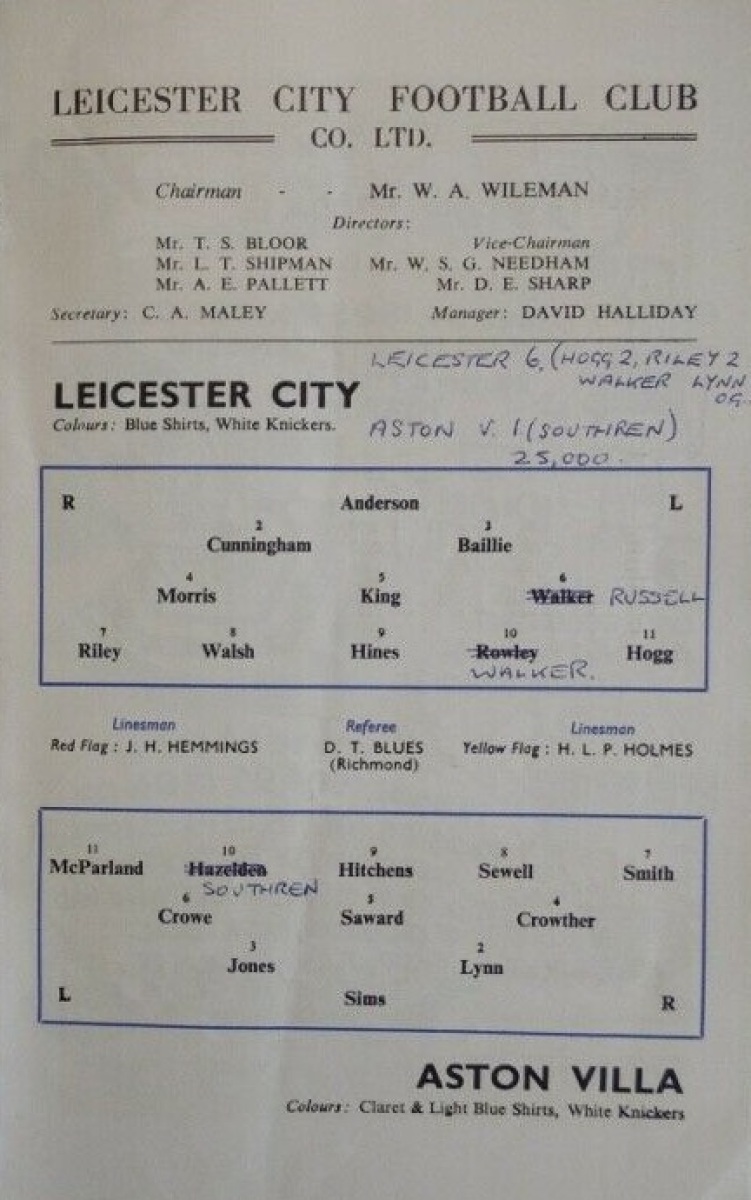 LEICESTER CITY FOOTBALL CLUB
CO. LTD.
Chairman - - Mr. W. A. WILEMAN
Directors:
Mr. T. S. BLOOR Vice-Chairman
Mr. L. T. SHIPMAN Mr. W. S. G. NEEDHAM
Mr. A. E. PALLETT Mr. D. E. SHARP
Secretary: C. A. MALEY Manager: DAVID HALLIDAY
LEICESTER 6, (HOGG 2, RILEY 2
WALKER LYNN
OG.
LEICESTER CITY
Colours: Blue Shirts, White Knickers.
ASTON V. 1 (SOUTHREN)
25,000.
R Anderson L
2 3
Cunningham Baillie
4 5 6
Morris King Walker RUSSELL
7 8 9 10 11
Riley Walsh Hines Rowley Hogg
WALKER.
Linesman Referee Linesman
Red Flag : J. H. HEMMINGS D. T. BLUES Yellow Flag : H. L. P. HOLMES
(Richmond)
11 10 9 8 7
McParland Hazelden Hitchens Sewell Smith
SOUTHREN
6 5 4
Crowe Saward Crowther
3 2
Jones Lynn
L Sims R
ASTON VILLA
Colours: Claret & Light Blue Shirts, White Knickers